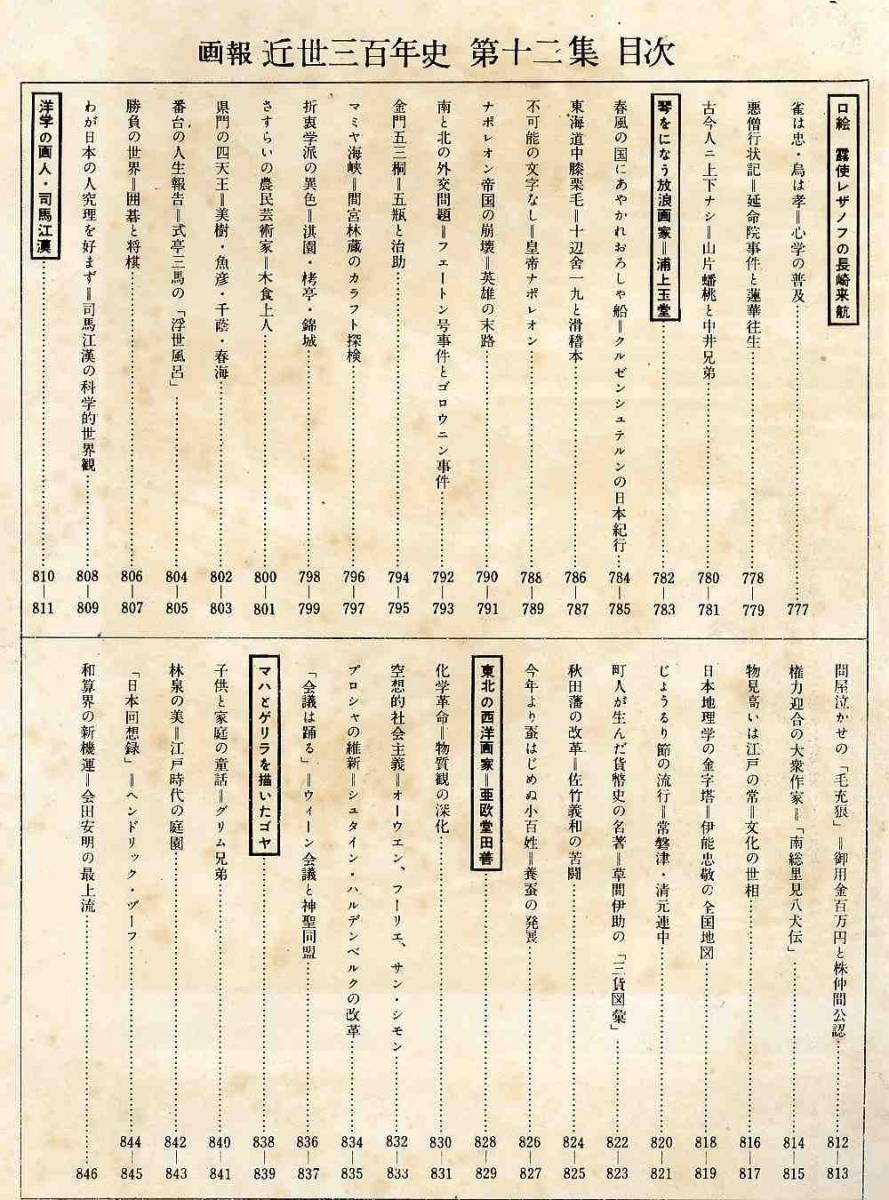 画報 近世三百年史 第十二集 目次
口絵 露使レザノフの長崎来航
雀は忠・烏は孝＝心学の普及…………777
悪僧行状記＝延命院事件と蓮華往生…………778—779
古今人ニ上下ナシ＝山片蟠桃と中井兄弟…………780—781
琴をになう放浪画家＝浦上玉堂…………782—783
春風の国にあやかれおろしゃ船＝クルゼンシュテルンの日本紀行…784—785
東海道中膝栗毛＝十辺舎一九と滑稽本…………786—787
不可能の文字なし＝皇帝ナポレオン…………788—789
ナポレオン帝国の崩壊＝英雄の末路…………790—791
南と北の外交問題＝フェートン号事件とゴロウニン事件…………792—793
金門五三桐＝五瓶と治助…………794—795
マミヤ海峡＝間宮林蔵のカラフト探検…………796—797
折衷学派の異色＝淇園・栲亭・錦城…………798—799
さすらいの農民芸術家＝木食上人…………800—801
県門の四天王＝美樹・魚彦・千蔭・春海…………802—803
番台の人生報告＝式亭三馬の「浮世風呂」…………804—805
勝負の世界＝囲碁と将棋…………806—807
わが日本の人究理を好まず＝司馬江漢の科学的世界観…………808—809
洋学の画人・司馬江漢…………810—811
問屋泣かせの「毛充狼」＝御用金百万円と株仲間公認…………812—813
権力迎合の大衆作家＝「南総里見八犬伝」…………814—815
物見高いは江戸の常＝文化の世相…………816—817
日本地理学の金字塔＝伊能忠敬の全国地図…………818—819
じょうるり節の流行＝常磐津・清元連中…………820—821
町人が生んだ貨幣史の名著＝草間伊助の「三貨図彙」…………822—823
秋田藩の改革＝佐竹義和の苦闘…………824—825
今年より蚕はじめぬ小百姓＝養蚕の発展…………826—827
東北の西洋画家＝亜欧堂田善…………828—829
化学革命＝物質観の深化…………830—831
空想的社会主義＝オーウエン、フーリエ、サン・シモン…………832—833
プロシャの維新＝シュタイン・ハルデンベルクの改革…………834—835
「会議は踊る」＝ウィーン会議と神聖同盟…………836—837
マハとゲリラを描いたゴヤ…………838—839
子供と家庭の童話＝グリム兄弟…………840—841
林泉の美＝江戸時代の庭園…………842—843
「日本回想録」＝ヘンドリック・ヅーフ…………844—845
和算界の新機運＝会田安明の最上流…………846